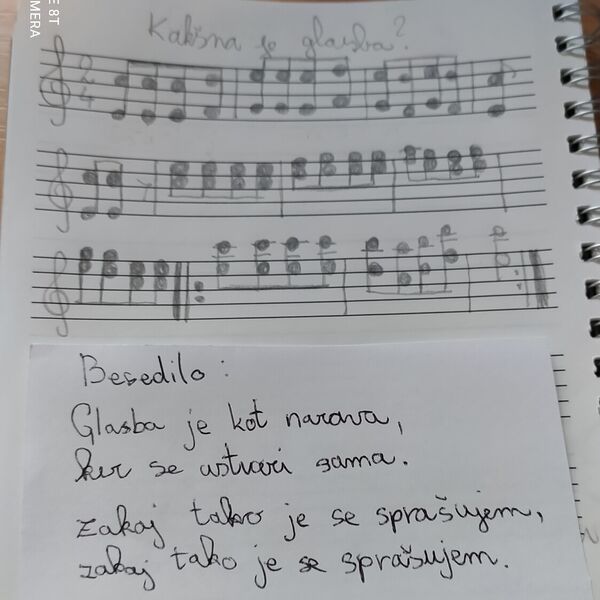 E 8T
MERA
Kakšna je glasba?
2
4
Besedilo:
Glasba je kot narava,
ker se ustvari sama.
Zakaj tako je se sprašujem,
zakaj tako je se sprašujem.